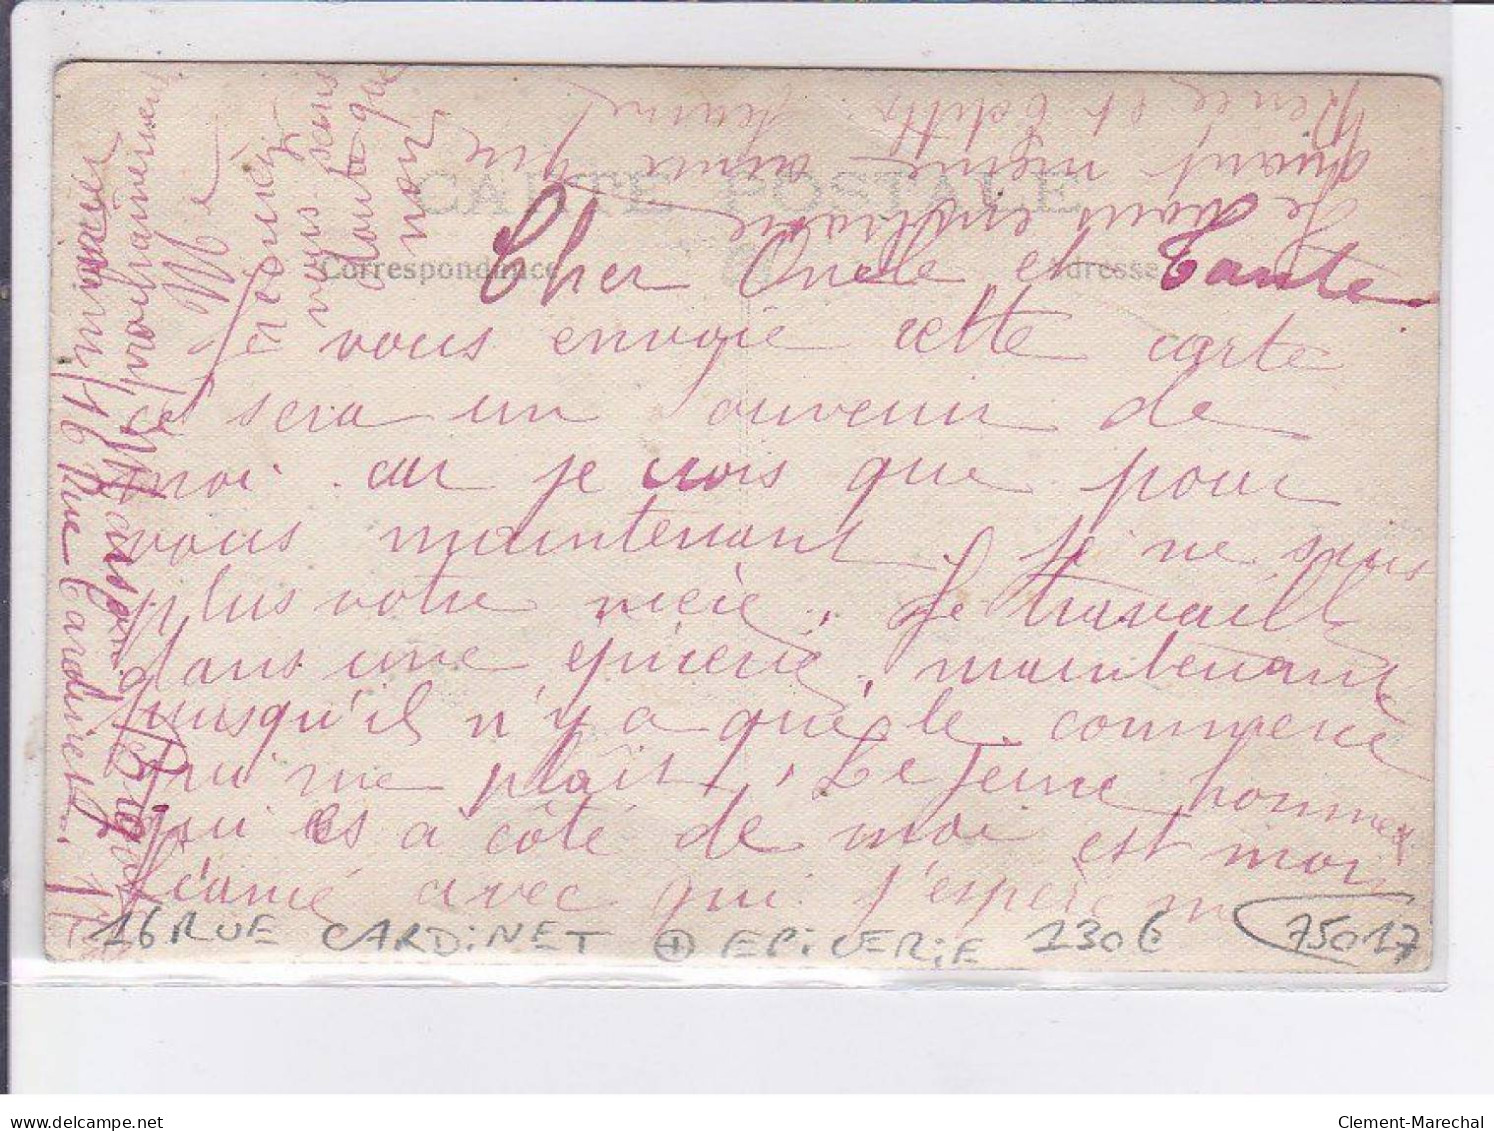 CARTE POSTALE
Correspondance
Adresse
Cher Oncle et Tante
Je vous envoie cette carte
ce sera un souvenir de
moi car je crois que pour
vous maintenant je ne suis
plus votre nièce. Je travaille
dans une épicerie, maintenant
puisqu'il n'y a que le commerce
qui me plaît. Le jeune homme
qui es a côté de moi est mon
fiancé avec qui j'espère me
prochainement
16 Rue Cardinet 17
répondez
vous sans
doute que
non
Je vous embrasse
quand même ainsi que
Renée et
16 RUE CARDINET + EPICERIE 130€ 75017
delcampe.net
Clement-Marechal